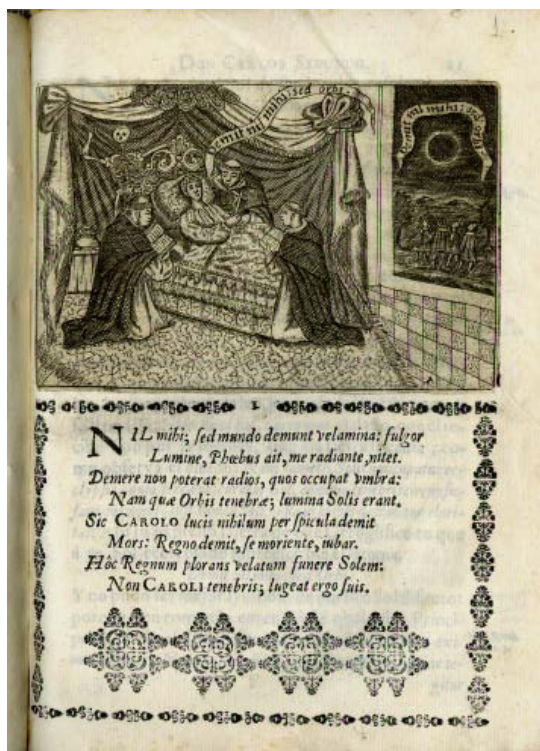 mihi; sed orbi.
mihi: sed orbi
I.
NIL mihi; sed mundo demunt velamina: fulgor
Lumine, Phœbus ait, me radiante, nitet.
Demere non poterat radios, quos occupat vmbra:
Nam quæ Orbis tenebræ; lumina Solis erant.
Sic CAROLO lucis nihilum per spicula demit
Mors: Regno demit, se moriente, iubar.
Hôc Regnum plorans velatum funere Solem:
Non CAROLI tenebris; lugeat ergo suis.